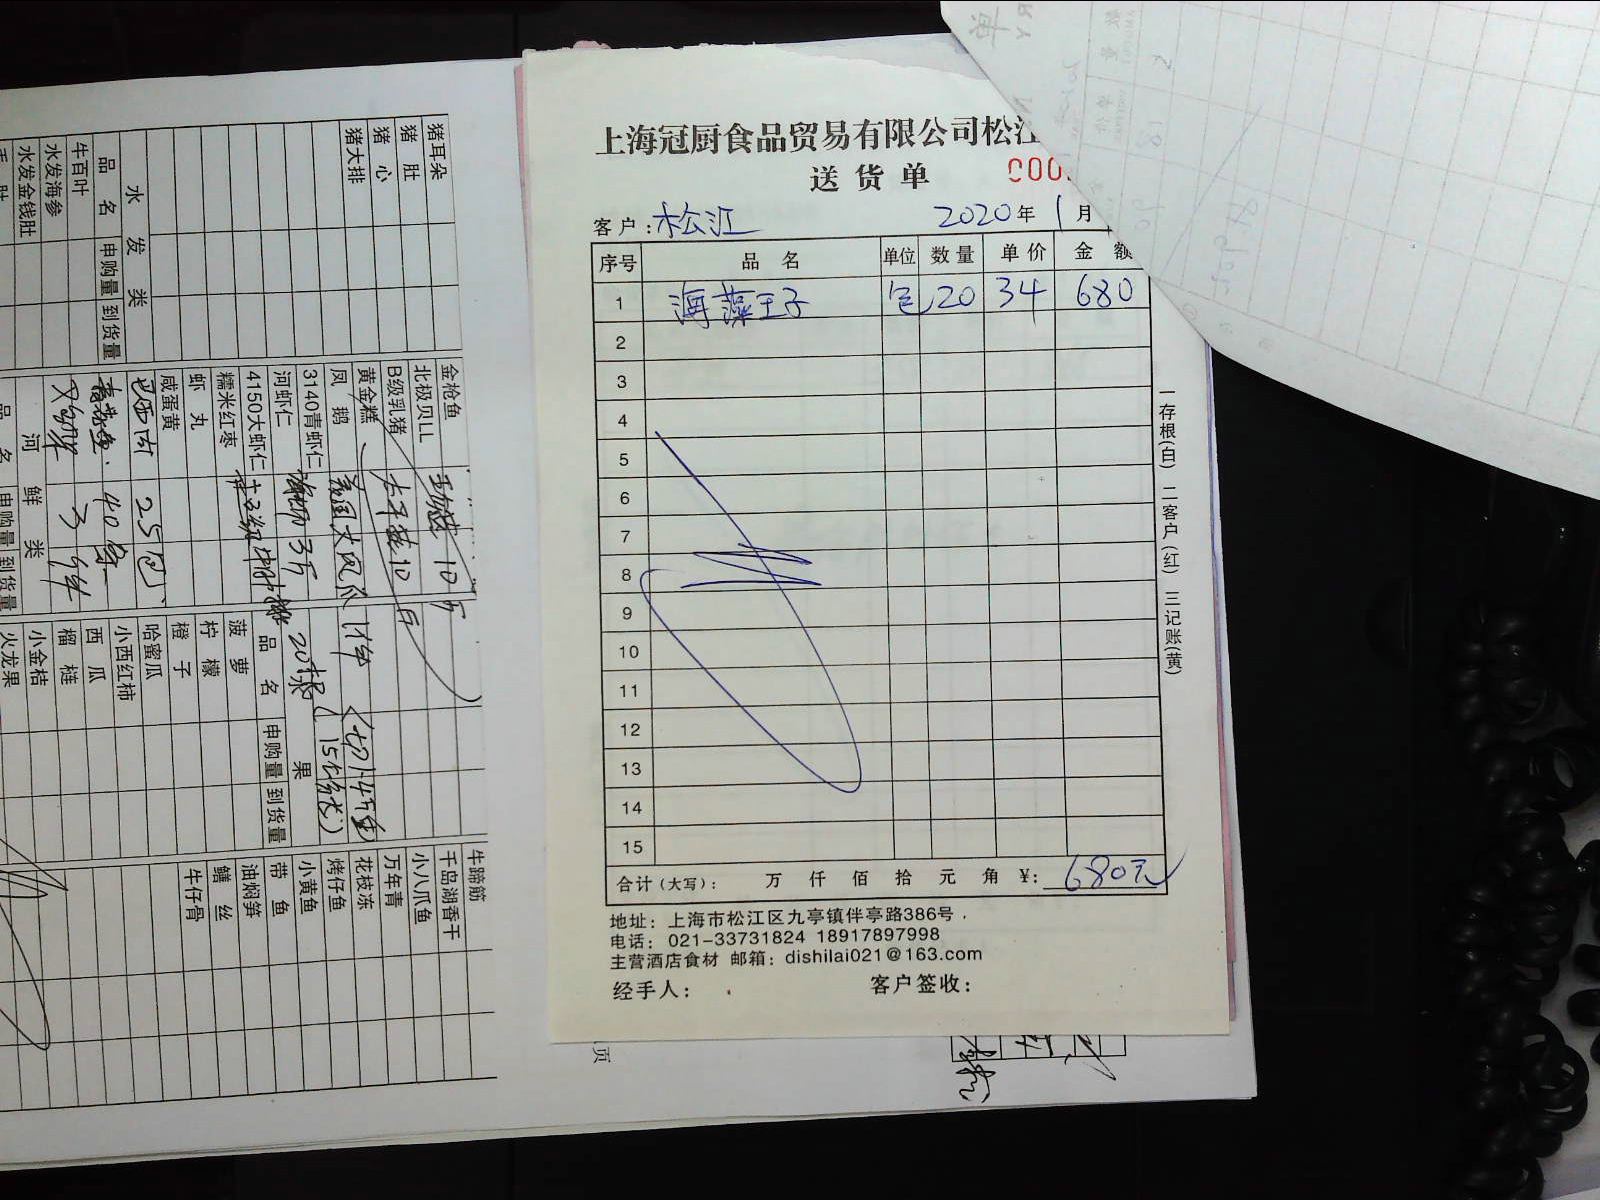 上海冠厨食品贸易有限公司松江
送货单 000
客户:松江 2020年1月
序号 品名 单位 数量 单价 金额
1 海藻王子 包 20 34 680
2
3
4
5
6
7
8
9
10
11
12
13
14
15
合计(大写): 万 仟 佰 拾 元 角 ¥: 680元
地址: 上海市松江区九亭镇伴亭路386号
电话: 021-33731824 18917897998
主营酒店食材 邮箱: dishilai021@163.com
经手人: 客户签收:
一存根(白) 二客户(红) 三记账(黄)
猪耳朵
猪肚
猪心
猪大排
水发类
品名 申购量 到货量
牛百叶
水发海参
水发金钱肚
金枪鱼
北极贝LL
B级乳猪
黄金糕
凤鹅
3140青虾仁
河虾仁
4150大虾仁
糯米红枣
虾丸
咸蛋黄
25包
40条
3件
河鲜类
品名 申购量 到货量
果
品名 申购量 到货量
菠萝
柠檬
橙子
哈蜜瓜
小西红柿
西瓜
榴梿
小金桔
火龙果
牛蹄筋
千岛湖香干
小八爪鱼
万年青
花枝冻
烤仔鱼
小黄鱼
带鱼
油焖笋
鳝丝
牛仔骨
页